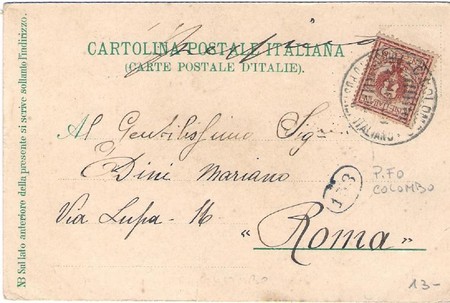 CARTOLINA POSTALE ITALIANA
(CARTE POSTALE D'ITALIE).
NB Sul lato anteriore della presente si scrive soltanto l'indirizzo.
Al Gentilissimo Sig
Dini Mariano
Via Lupa - 16
"Roma"
P.FO
COLOMBO
13-